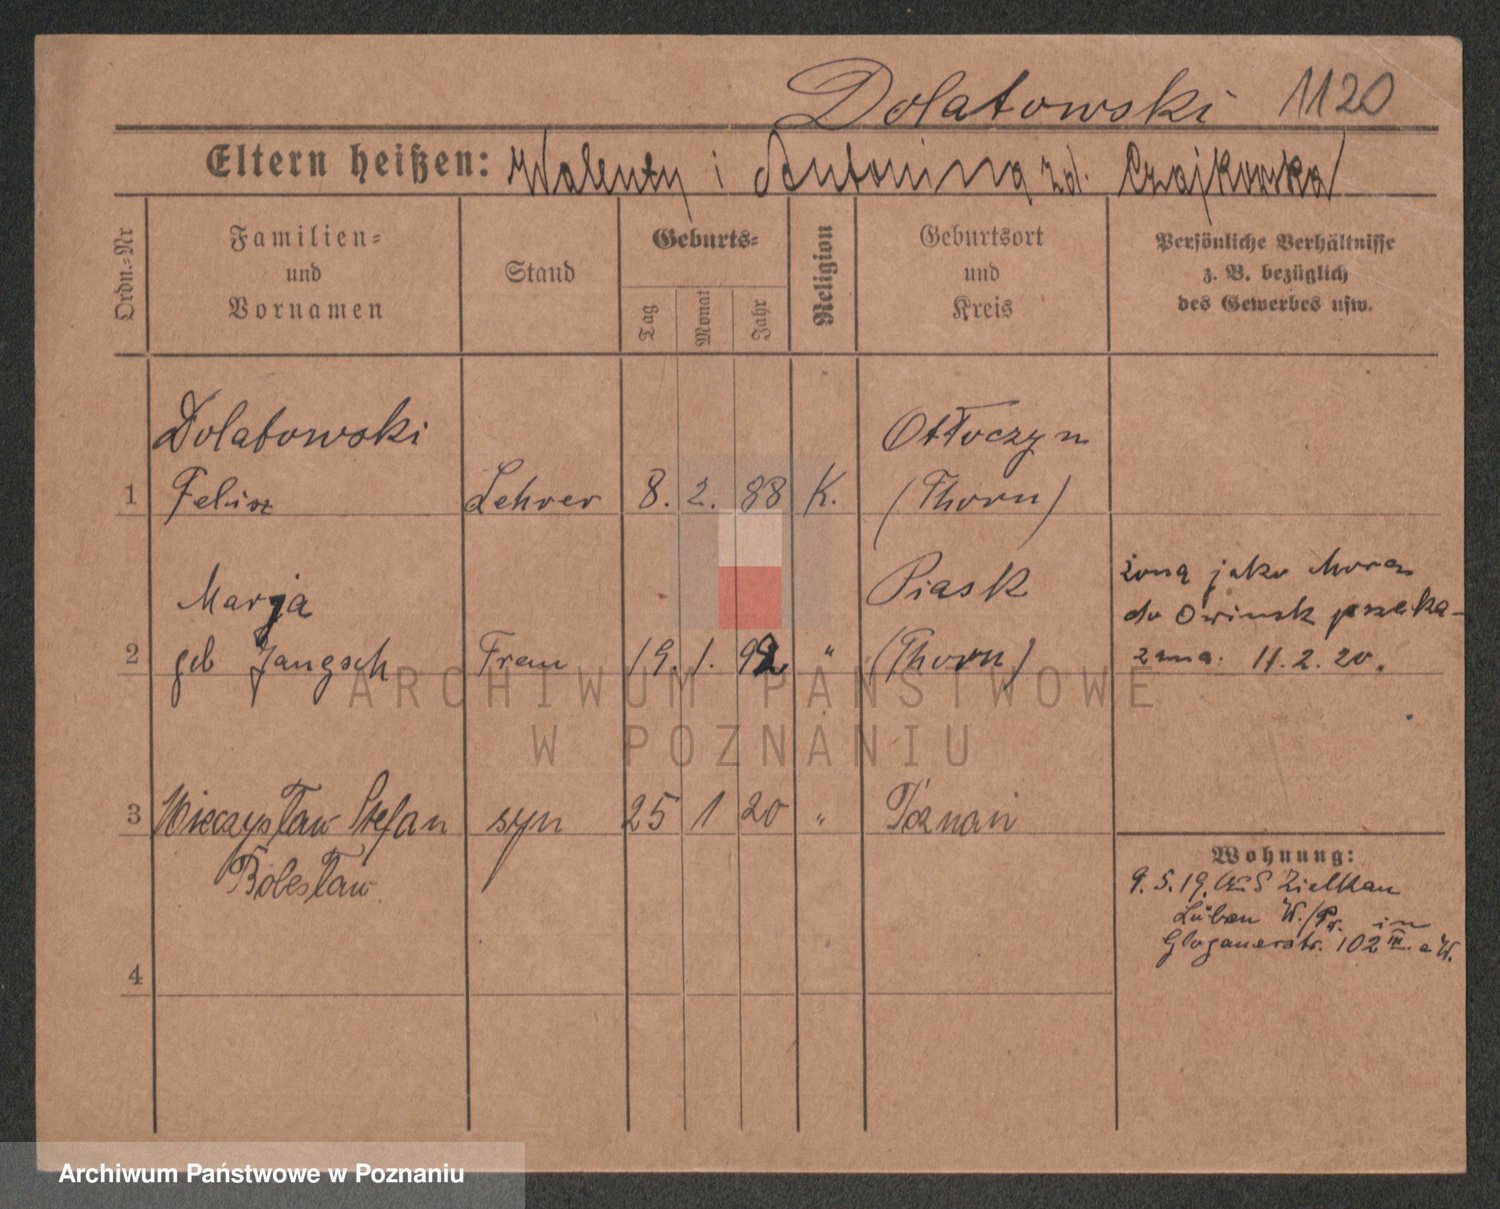 Dolatowski 1120
Eltern heißen: Walenty i Antonina zd. Czajkowska
Ordn.-Nr
Familien-
und
Vornamen
Stand
Geburts-
Tag
Monat
Jahr
Religion
Geburtsort
und
Kreis
Persönliche Verhältnisse
z. B. bezüglich
des Gewerbes usw.
Dolatowski Otłoczyn
1 Felisz Lehrer 8. 2. 88 K. (Thorn)
Marja Piask
2 geb Jangsch Frau 19. 1. 92 " (Thorn)
żona jako chora
do Owinsk przeka-
zana. 11.2.20.
3 Mieczysław Stefan syn 25 1 20 " Poznań
Bolesław
4
Wohnung:
9.5.19. aus Zielkau
Löban W./Pr. in
Glogauerstr. 102 III. a W.
ARCHIWUM PAŃSTWOWE
W POZNANIU
Archiwum Państwowe w Poznaniu